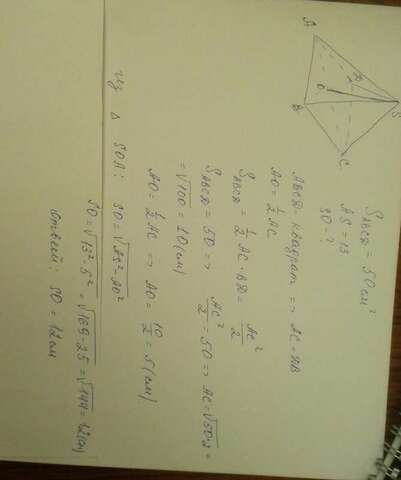 A
B
C
D
O
S
S ABCD = 50 см²
AS = 13
SO - ?
ABCD - квадрат => AC = DB
AO = 1/2 AC
S ABCD = 1/2 AC · BD = AC²/2
S ABCD = 50 => AC²/2 = 50 => AC = √50·2 =
= √100 = 10 (см)
AO = 1/2 AC => AO = 10/2 = 5 (см)
Из Δ SOA: SO = √AS² - AO²
SO = √13² - 5² = √169 - 25 = √144 = 12 (см)
Ответ: SO = 12 см